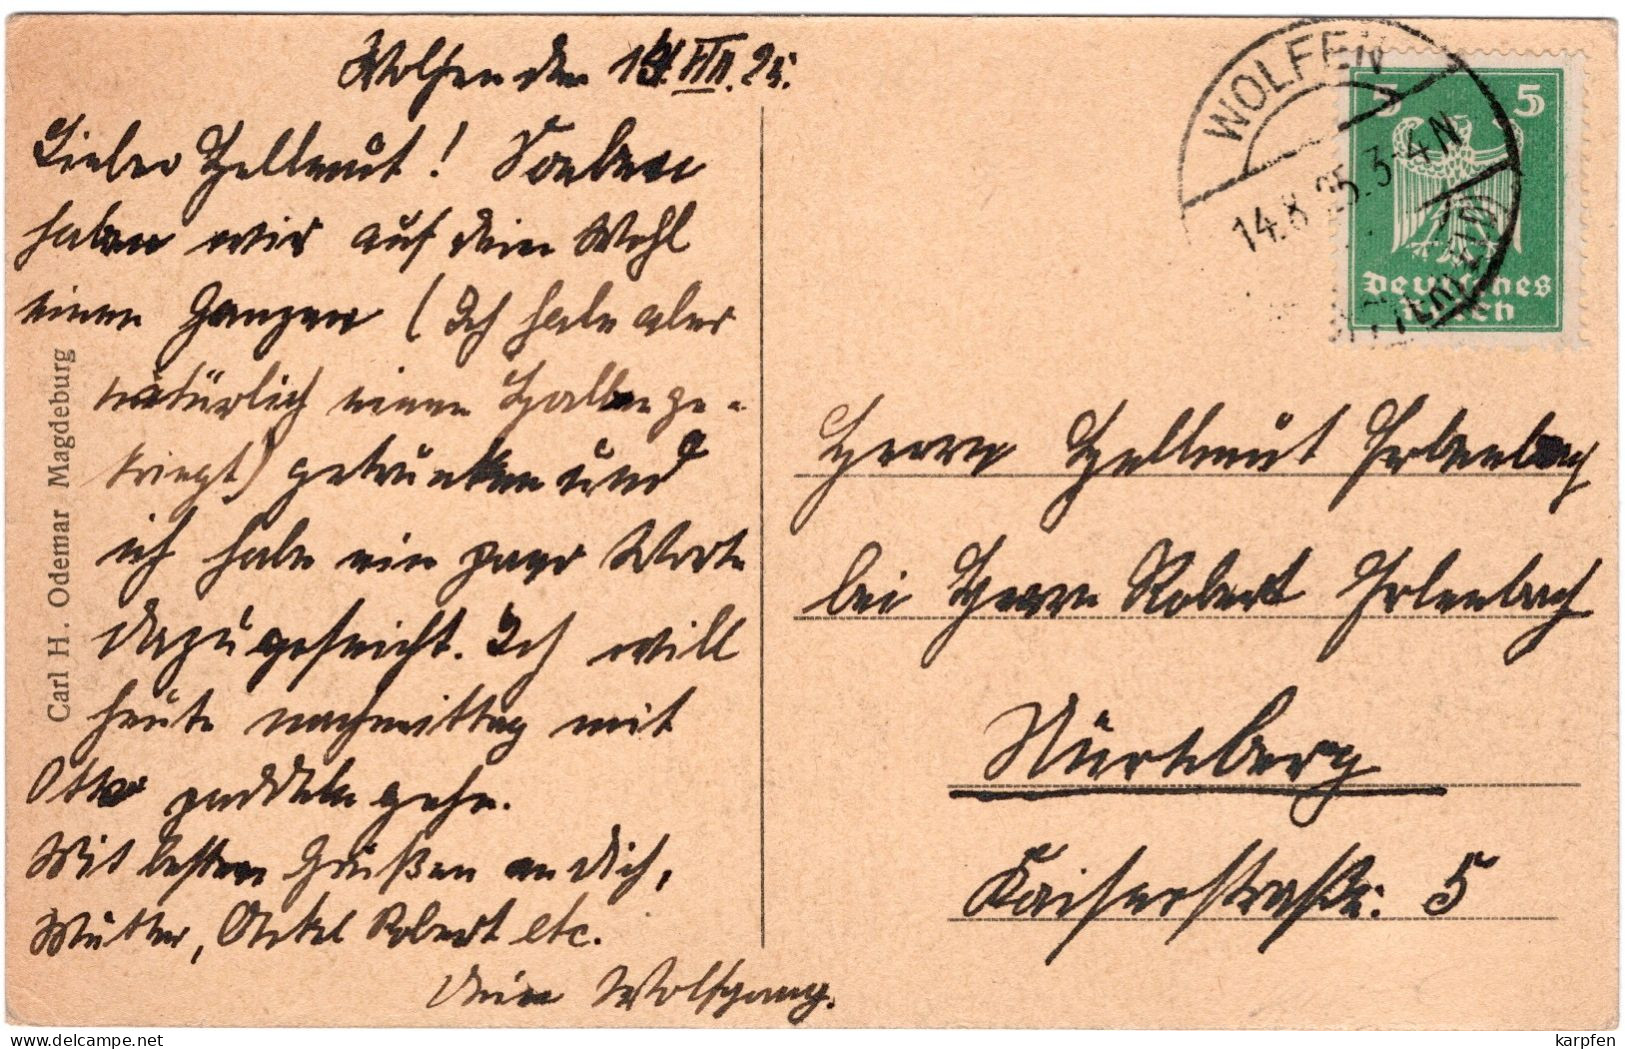 Wolfen den 14. VIII. 25.
Lieber Hellmut! Soeben
haben wir auf dein Wohl
einen Ganzen (Ich habe aber
natürlich einen Halben ge-
kriegt) getrunken und
ich habe ein paar Worte
dazu gereicht. Ich will
heute nachmittag mit
Otto paddeln gehn.
Mit besten Grüßen an dich,
Mutter, Onkel Robert etc.
Dein Wolfgang.
Carl H. Odemar Magdeburg
WOLFEN
14.8.25. 3-4 N
5 5
Deutsches
Reich
Herrn Hellmut Erlenbach
bei Herrn Robert Erlenbach
Nürnberg
Kaiserstraße 5
karpfen
delcampe.net